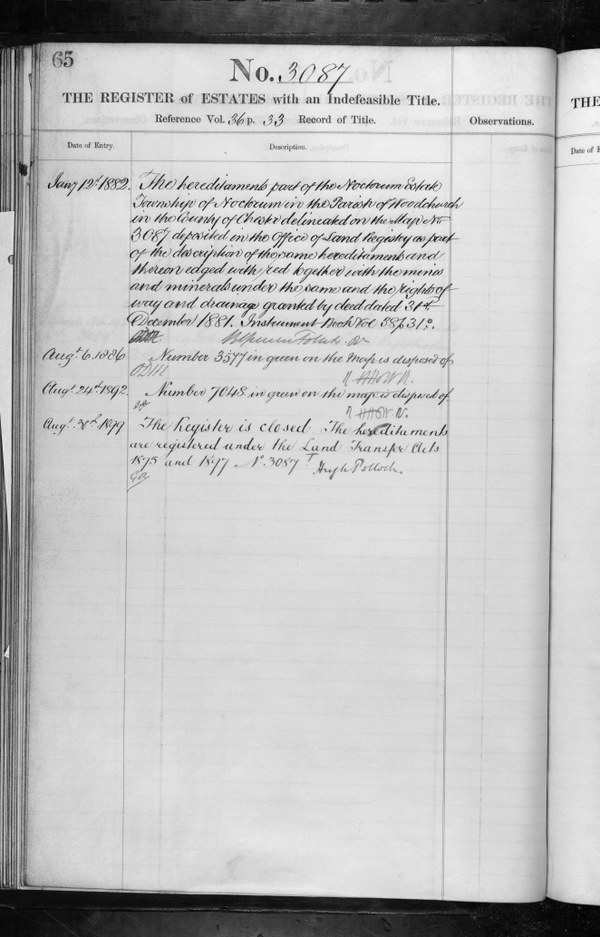 65
No. 3087
THE REGISTER of ESTATES with an Indefeasible Title.
Reference Vol. 36 p. 33 Record of Title.
Observations.
Date of Entry.
Description.
Jany 12th 1882. The hereditaments part of the Noctorum Estate
Township of Noctorum in the Parish of Woodchurch
in the County of Chester delineated on the Map No
3087 deposited in the Office of Land Registry as part
of the description of the same hereditaments and
thereon edged with red together with the mines
and minerals under the same and the rights of
way and drainage granted by deed dated 31st
December 1881. Instrument Book Vol 58 p 310.
Augt 6. 1886 Number 3577 in green on the Map is disposed of
Augt 24th 1892. Number 7048 in green on the map is disposed of
Augt 1899 The Register is closed The hereditaments
are registered under the Land Transfer Acts
1875 and 1897 No 3087 Hugh Pollock.
THE
Date of E